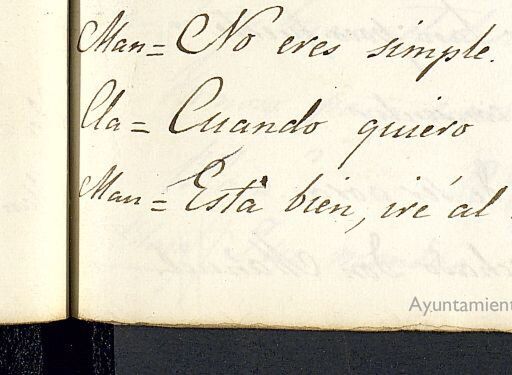 Man= No eres simple.
Cla= Cuando quiero
Man= Está bien, iré al
Ayuntamient